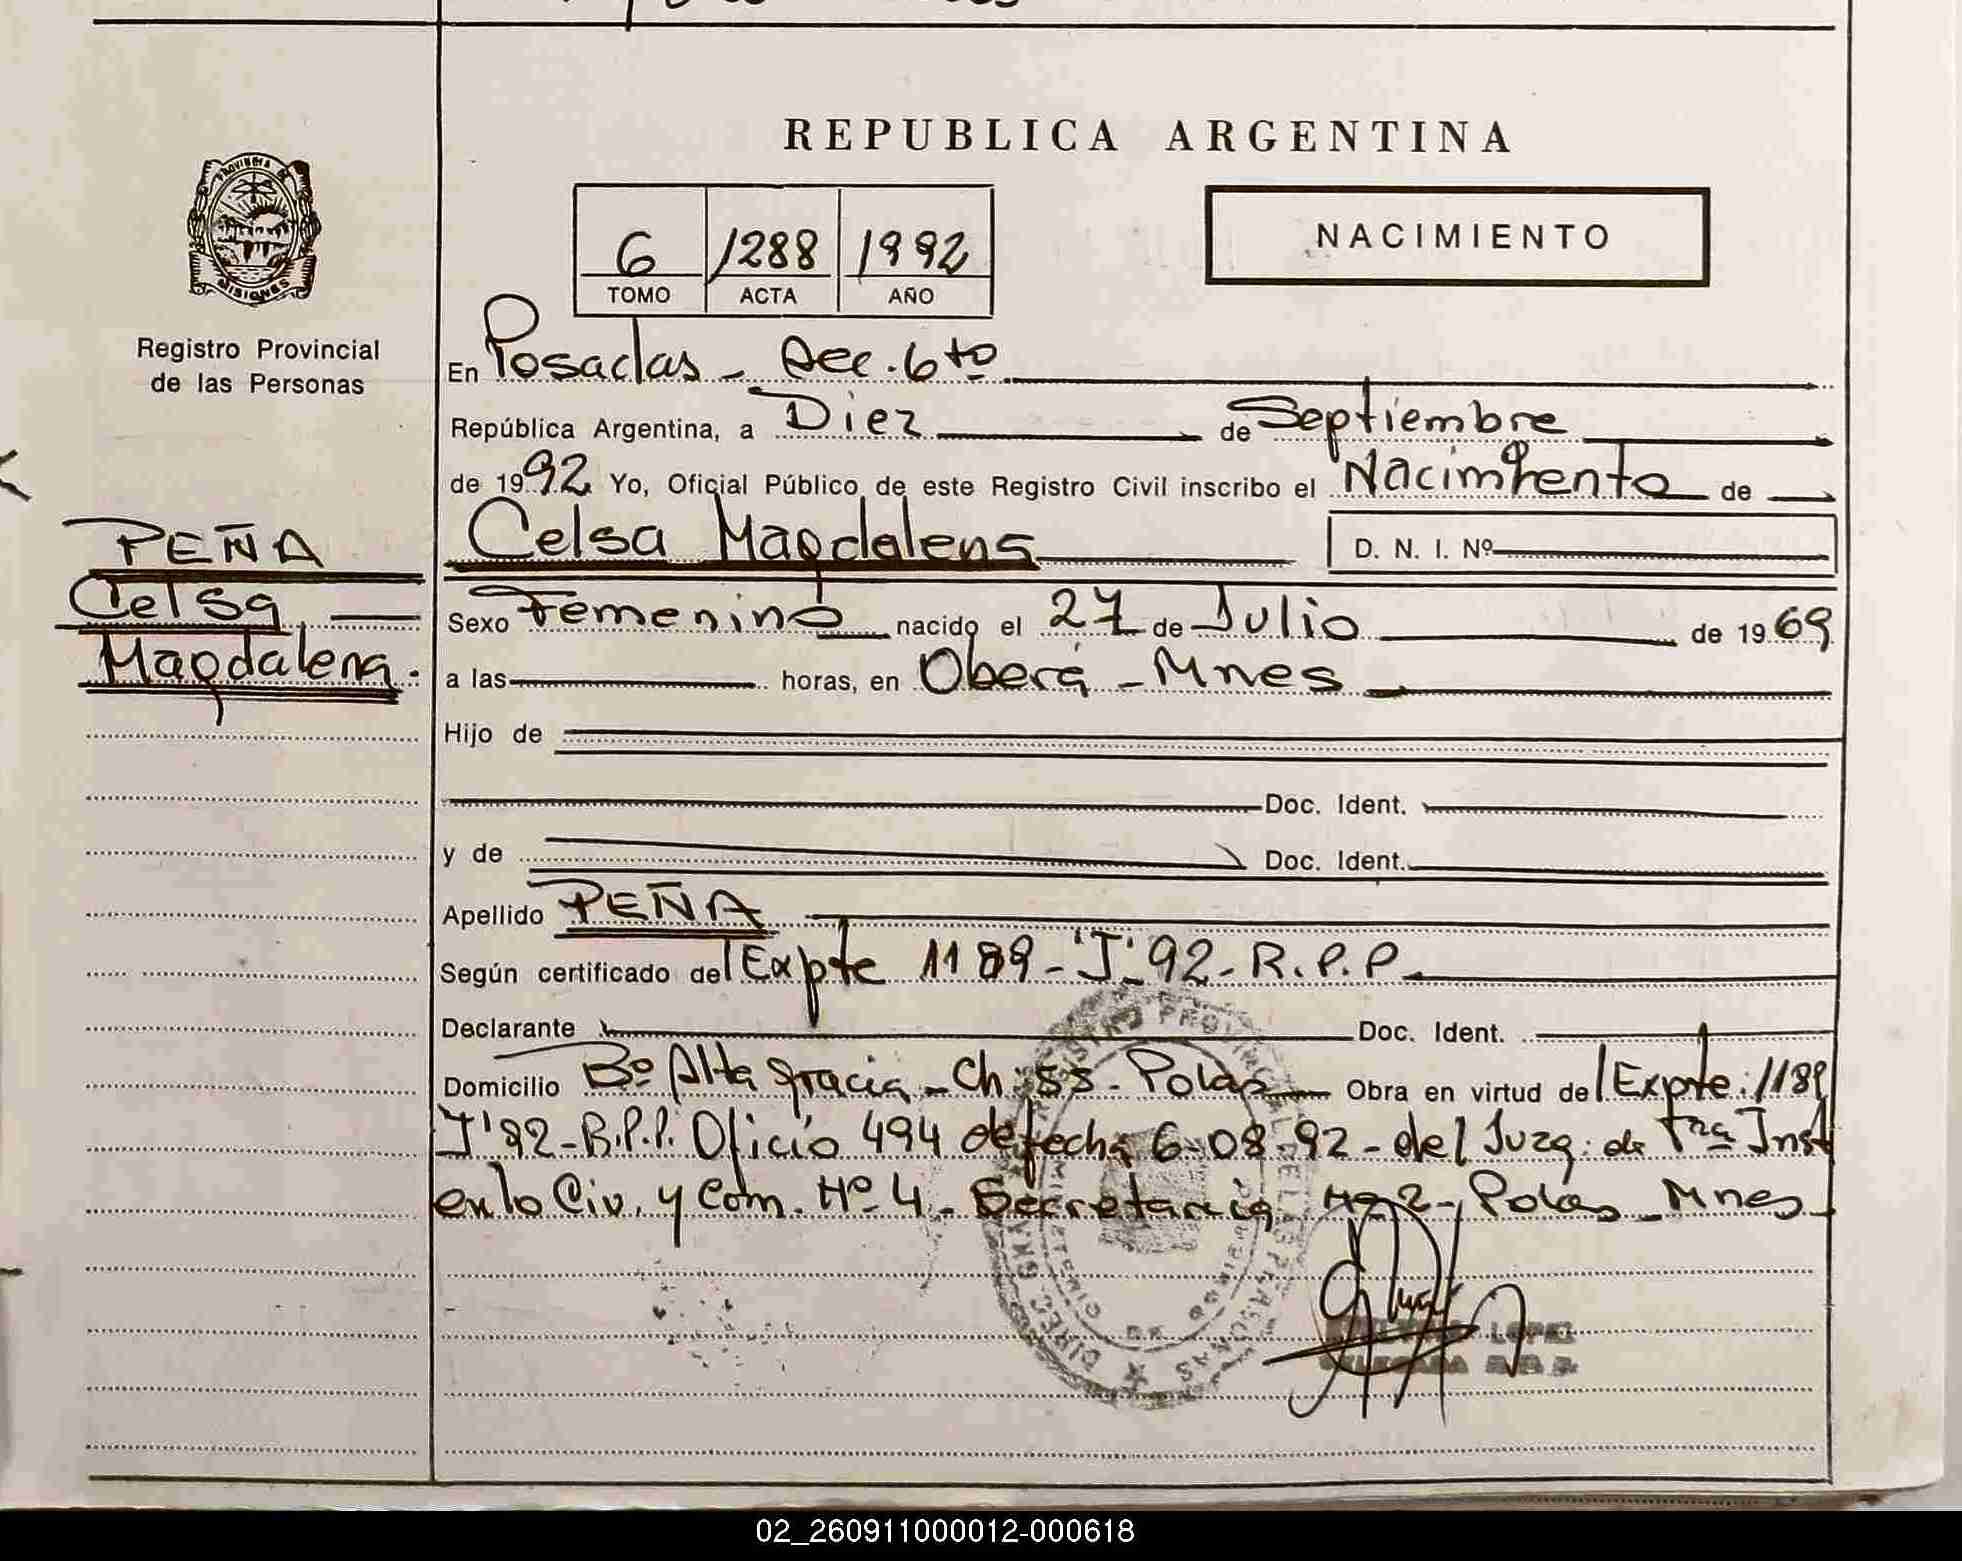 REPUBLICA ARGENTINA
PROVINCIA DE
MISIONES
Registro Provincial
de las Personas
6 1288 1992
TOMO ACTA AÑO
NACIMIENTO
En Posadas - Sec. 6to
República Argentina, a Diez de Septiembre
de 1992 Yo, Oficial Público de este Registro Civil inscribo el Nacimiento de
PEÑA
Celsa
Magdalena.
Celsa Magdalena D. N. I. Nº
Sexo Femenino nacido el 27 de Julio de 1969
a las horas, en Oberá - Mnes
Hijo de
Doc. Ident.
y de Doc. Ident.
Apellido PEÑA
Según certificado del Expte 1189-'J'92-R.P.P.
Declarante Doc. Ident.
Domicilio Bº Alta gracia - Ch: 55 - Pdas Obra en virtud del Expte: 1189
J'92-R.P.P. Oficio 494 de fecha 6-08-92 - del Juzg. de 1ra Inst
en lo Civ. y Com. Nº 4 - Secretaria Nº 2 - Pdas - Mnes
LOPEZ
DELEGADA R.P.P.
02_260911000012-000618